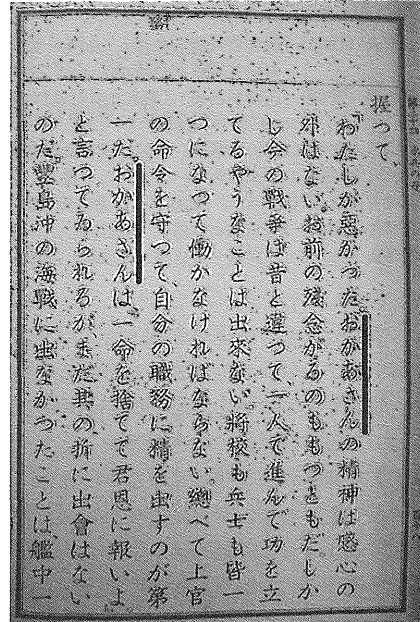 握つて、
「わたしが悪かつた。おかあさんの精神は感心の
外はない。お前の殘念がるのももつともだ。しか
し今の戰爭は昔と違つて、一人で進んで功を立
てるやうなことは出來ない。將校も兵士も皆一
つになつて働かなければならない。總べて上官
の命令を守つて、自分の職務に精を出すのが第
一だ。おかあさんは、一命を捨てて君恩に報いよ
と言つてゐられるが、まだ其の折に出會はない
のだ。豐島沖の海戰に出なかつたことは、艦中一